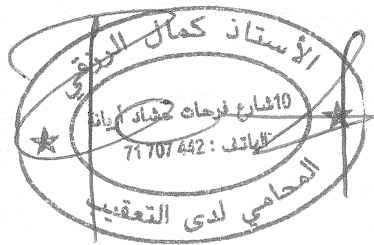 الأستاذ كمال الورقي
10 شارع فرحات حشاد أريانة
الهاتف : 71 707 442
المحامي لدى التعقيب